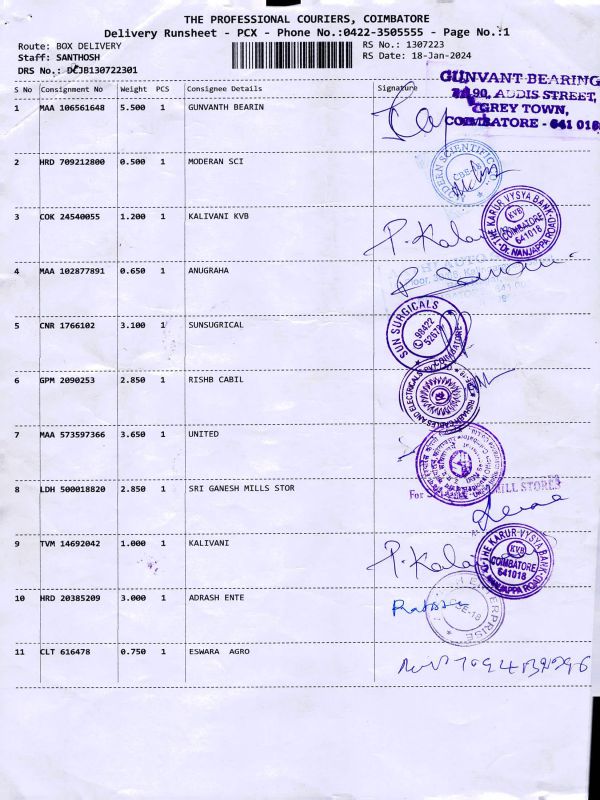 THE PROFESSIONAL COURIERS, COIMBATORE
Delivery Runsheet - PCX - Phone No.:0422-3505555 - Page No.:1
Route: BOX DELIVERY RS No.: 1307223
Staff: SANTHOSH RS Date: 18-Jan-2024
DRS No.: DCJB130722301
S No Consignment No Weight PCS Consignee Details Signature
GUNVANT BEARING
90, ADDIS STREET,
GREY TOWN,
COIMBATORE - 641 018
1 MAA 106561648 5.500 1 GUNVANTH BEARIN
2 HRD 709212800 0.500 1 MODERAN SCI
MODERN SCIENTIFIC
3 COK 24540055 1.200 1 KALIVANI KVB P. Kala
THE KARUR VYSYA BANK
KVB
COIMBATORE
641018
Dr. NANJAPPA ROAD
4 MAA 102877891 0.650 1 ANUGRAHA
5 CNR 1766102 3.100 1 SUNSUGRICAL
SUN SURGICALS
98422
COIMBATORE
6 GPM 2090253 2.850 1 RISHB CABIL
7 MAA 573597366 3.650 1 UNITED
8 LDH 500018820 2.850 1 SRI GANESH MILLS STOR
For MILL STORES
9 TVM 14692042 1.000 1 KALIVANI P. Kala
THE KARUR VYSYA BANK
KVB
COIMBATORE
641018
NANJAPPA ROAD
10 HRD 20385209 3.000 1 ADRASH ENTE
ENTERPRISE
11 CLT 616478 0.750 1 ESWARA AGRO